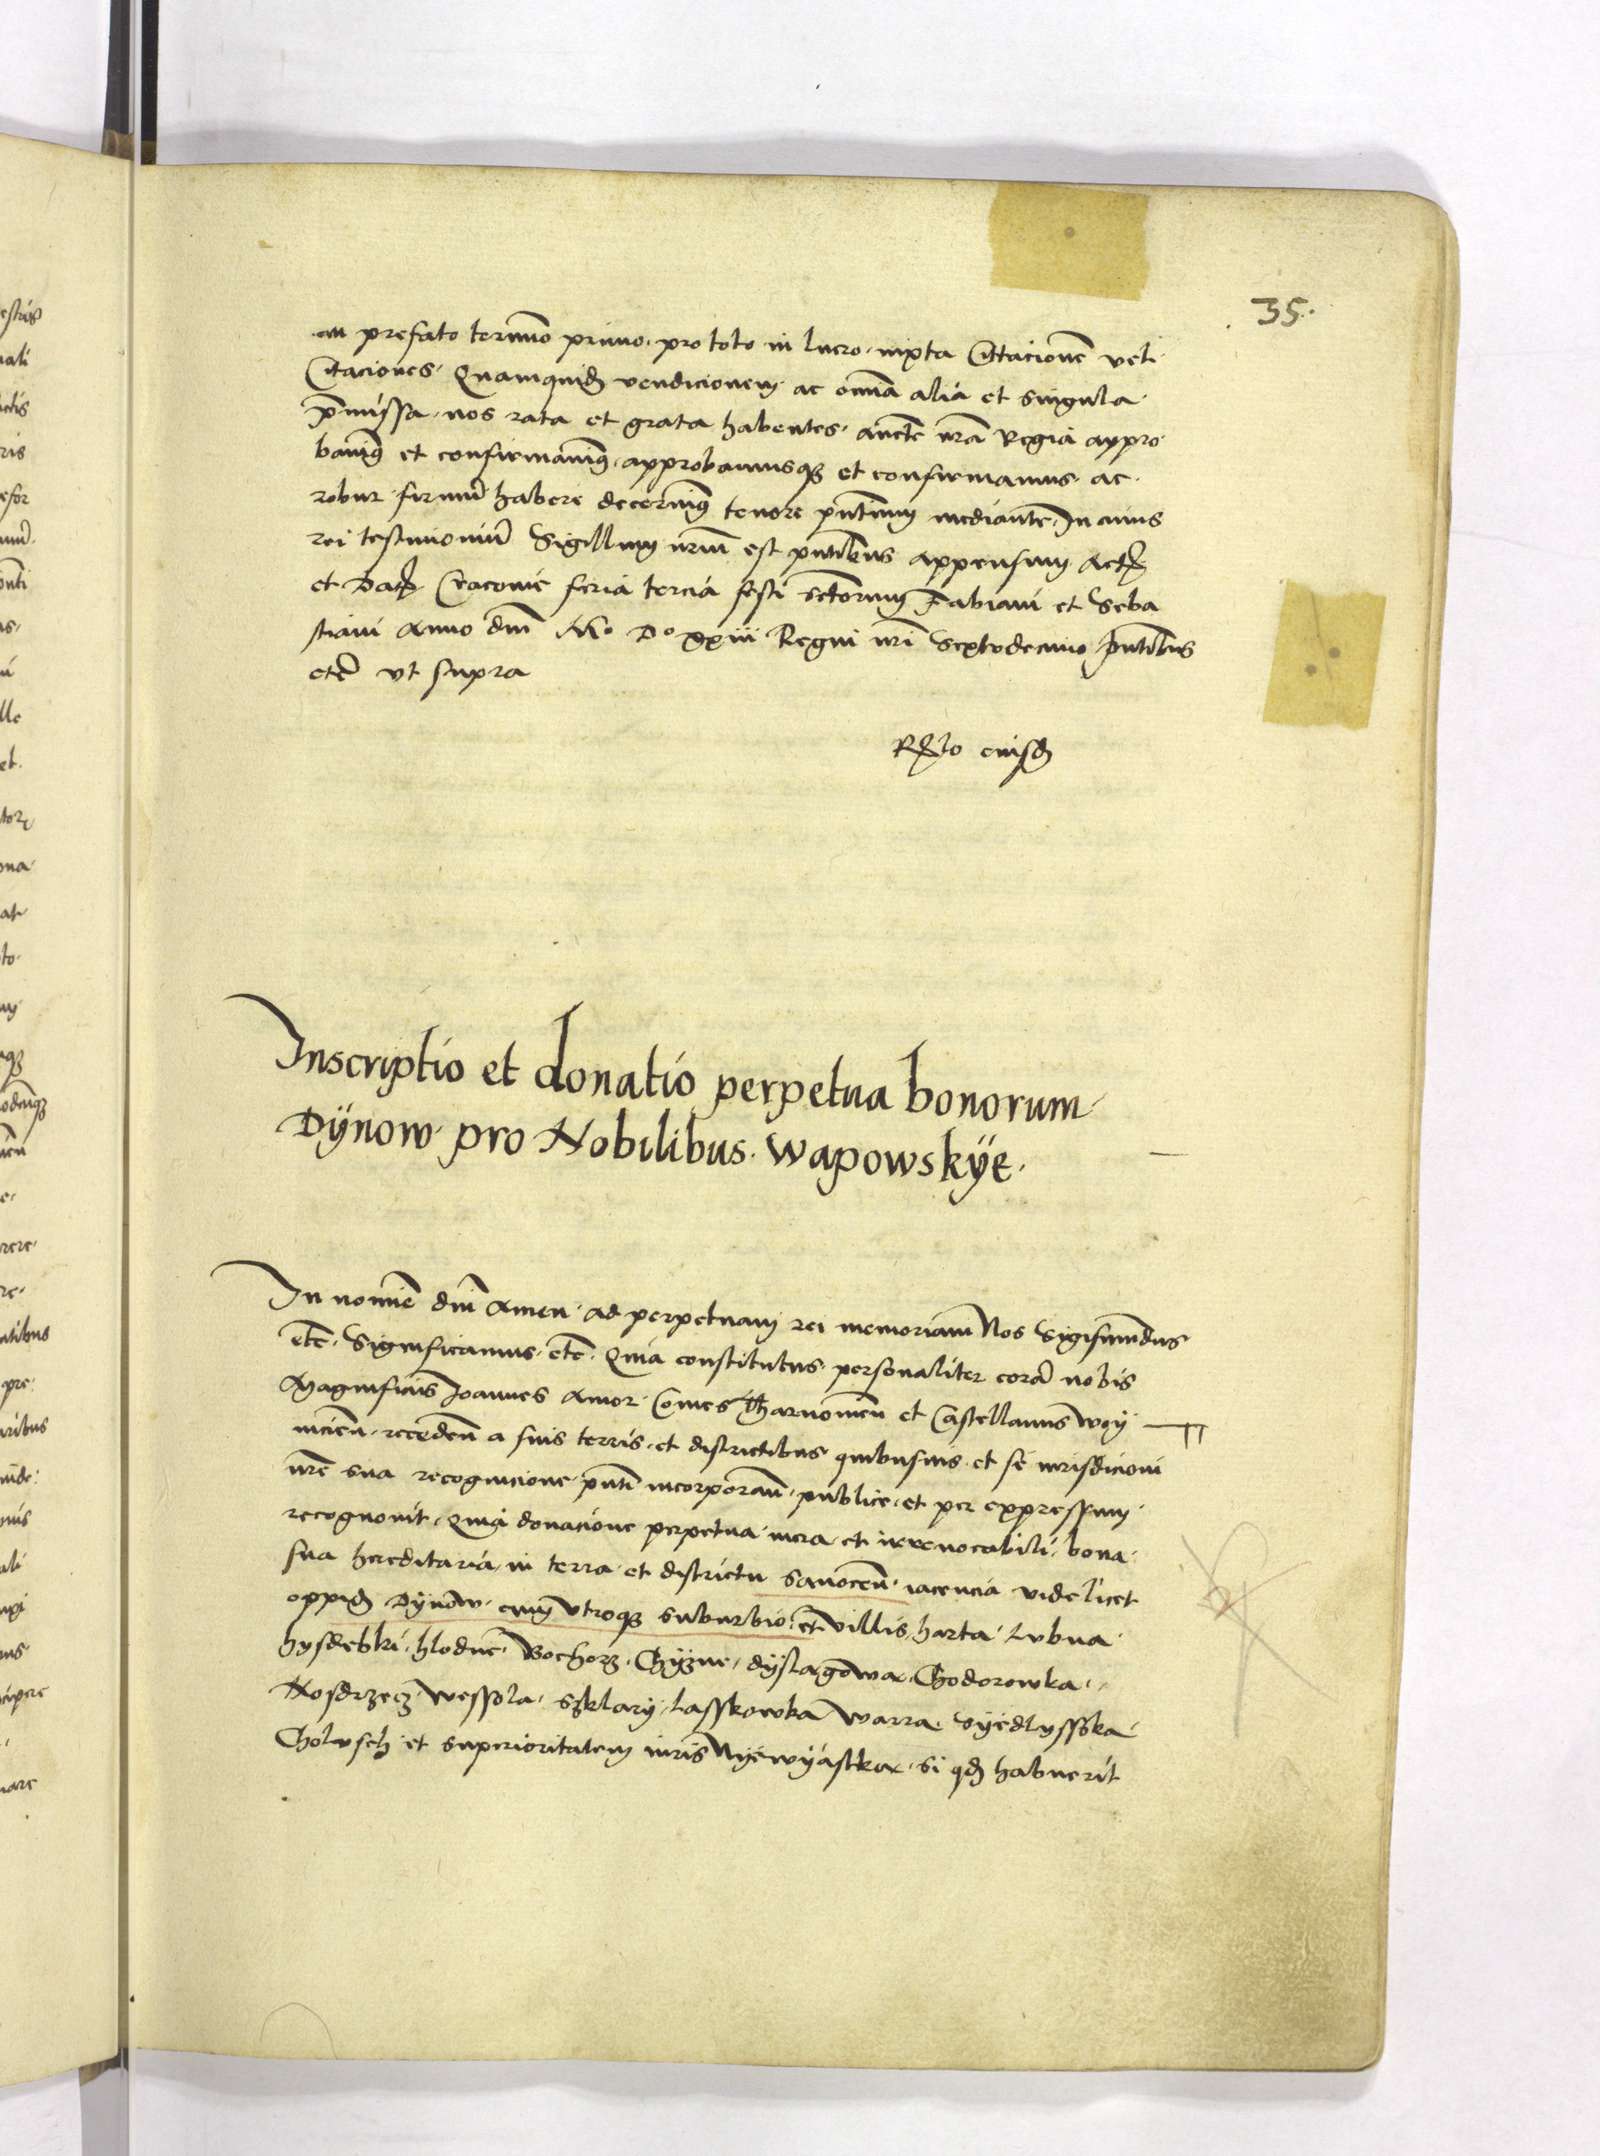 35.
in prefato termino primo. pro toto in lucro. iuxta Citacionem vel.
Citaciones. Quamquid vendicionem. ac omnia alia et singula.
pmissa. nos rata et grata habentes. aucte nra Regia appro
bavimq et confirmavimq. approbamusq et confirmamus. ac.
robur firmu habere decernimq tenore pntium mediante. In cuius
rei testimoniu Sigillum nrum est pntibus appensum Act
et Dat Cracovie feria tercia festi sctorum Fabiani et Seba
stiani Anno dni Mo Do xxiii Regni nri Sextodecimo pntibus
etc vt supra
Rlo eiusd
Inscriptio et donatio perpetua bonorum
Dÿnow pro Nobilibus. Wapowskÿe.
In nomie dni Amen. Ad perpetuam rei memoriam Nos Sigismundus
etc. Significamus. etc. Quia constitutus. personaliter cora nobis
Magnificus Ioannes Amor. Comes Tharnowien et Castellanus Woy
nicien. receden a suis terris. et districtibus quibusuis. et se iurisdicioni
nre sua recognicione pnti incorporan. publice. et per expressum.
recognouit. Quia donacione perpetua mera et irreuocabili. bona.
sua hereditaria in terra et districtu Sanocen. iacencia videlicet
oppid Dynow. cum vtroq suburbio. et villis. harta. Lubna.
hysdebki. hlodne. Bochorz. Chÿzne. dÿlagowa. Chodorowka.
Nosdrzecz. Wessola. Szklarÿ. Lasskowka Warra Vÿedlysska.
Cholusch et superioritatem iuris Nyewyastka. si qd habuerit